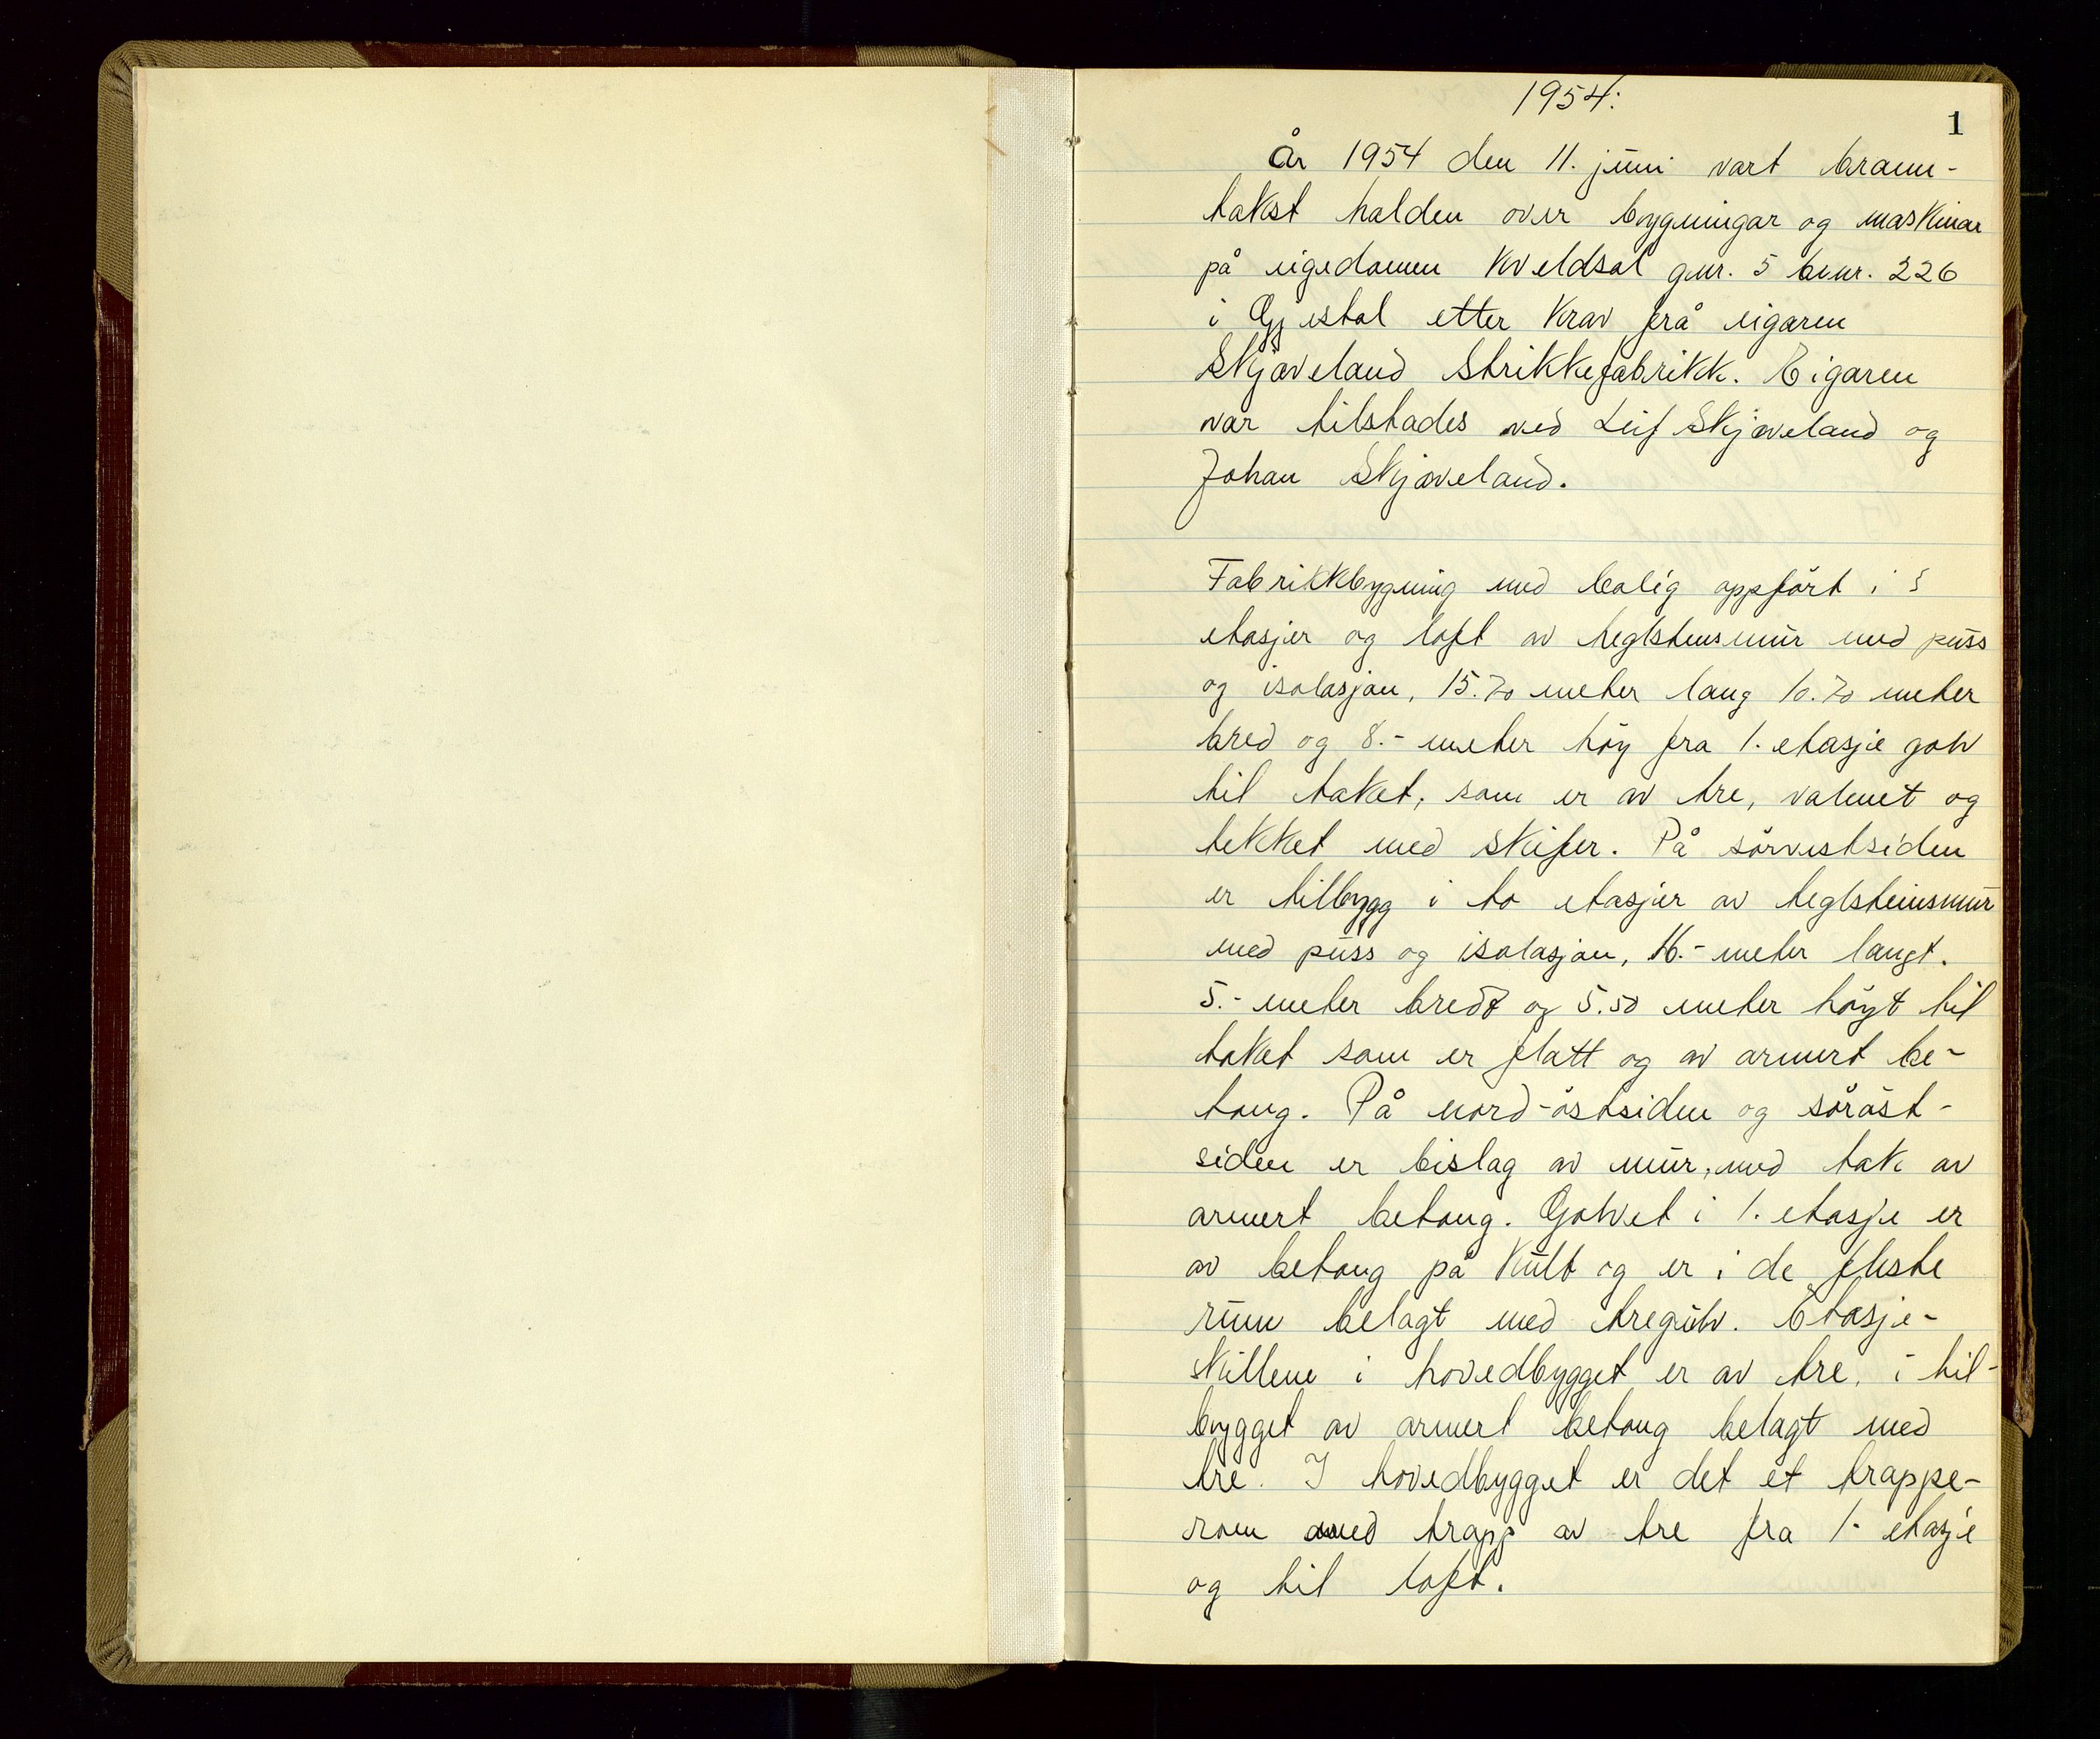 1954:
1
År 1954 den 11. juni vart brann-
takst halden over bygningar og maskinar
på eigedomen Kveldsol gnr. 5 bnr. 226
i Gjestal etter krav frå eigaren
Skjæveland Strikkefabrikk. Eigaren
var tilstades ved Leif Skjæveland og
Johan Skjæveland.
Fabrikkbygning med bolig oppført i
etasjer og loft av teglstensmur med puss
og isolasjon, 15.70 meter lang 10.70 meter
bred og 8.- meter høy fra 1. etasje golv
til taket, som er av tre, valmet og
tekket med skifer. På sørvestsiden
er tilbygg i to etasjer av teglsteinsmur
med puss og isolasjon, 16.- meter langt.
5.- meter bredt og 5.50 meter høyt til
taket som er flatt og av armert be-
tong. På nord-østsiden og sørøst-
siden er bislag av mur, med tak av
armert betong. Golvet i 1. etasje er
av betong på kult og er i de fleste
rum belagt med tregulv. Etasje-
skillene i hovedbygget er av tre, i til-
bygget av armert betong belagt med
tre. I hovedbygget er det et trappe-
rom med trapp av tre fra 1. etasje
og til loft.